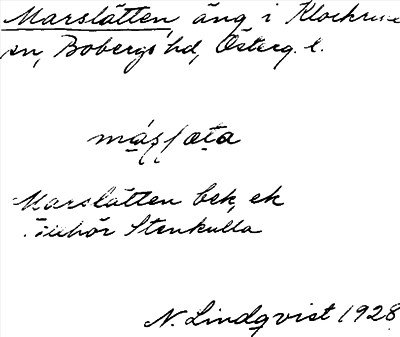 Marslätten, äng i Klockrike
sn, Bobergs hd, Österg. l.
Marslätten bek, ek
Tillhör Stenkulla
N. Lindqvist 1928